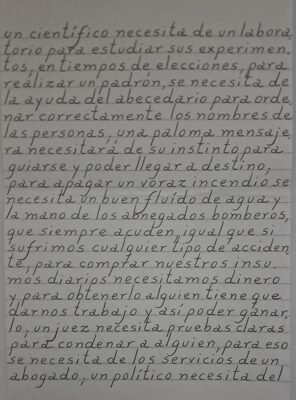 un científico necesita de un labora
torio para estudiar sus experimen.
tos, en tiempos de elecciones, para
realizar un padrón, se necesita de
la ayuda del abecedario para orde.
nar correctamente los nombres de
las personas, una paloma mensaje.
ra necesitará de su instinto para
guiarse y poder llegar a destino,
para apagar un voraz incendio se
necesita un buen fluído de agua y
la mano de los abnegados bomberos,
que siempre acuden, igual que si
sufrimos cualquier tipo de acciden.
te, para comprar nuestros insu.
mos diarios necesitamos dinero
y para obtenerlo alguien tiene que
darnos trabajo y así poder ganar.
lo, un juez necesita pruebas claras
para condenar a alguien, para eso
se necesita de los servicios de un
abogado, un político necesita del